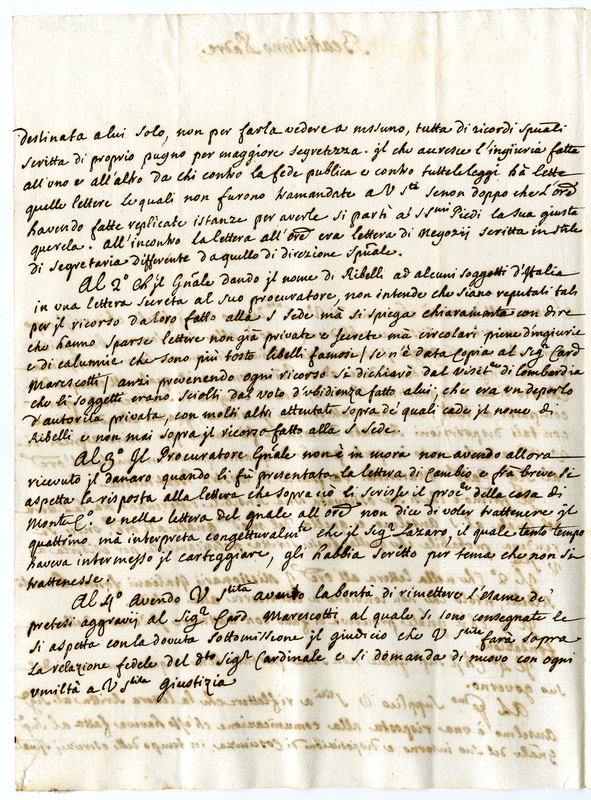 destinata a lui solo, non per farla vedere a nissuno, tutta di ricordi spũali
scritta di proprio pugno per maggiore segretezza. jl che accresce l'ingiuria fatta
all'uno e all'altro da chi contro la fede publica e contro tutte le leggi hà lette
quelle lettere le quali non furono tramandate a V Stà se non doppo che l'Orẽ
havendo fatte replicate istanze per averle si partì a' SSmi Piedi la sua giusta
querela. all'incontro la lettera all'Orẽ era lettera di Negozij scritta in stile
di segretaria differente da quello di direzione spũale.
Al 2º Ch'jl Gñale dando jl nome di Ribelli ad alcuni soggetti d'Italia
in una lettera secreta al suo procuratore, non intende che siano reputati tali
per jl ricorso da loro fatto alla S Sede mà si spiega chiaramente con dire
che hanno sparse lettere non già private e secrete mà circolari piene d'ingiurie
e di calumnie che sono più tosto libelli famosi / se n'è data Copia al Sigr Card
Marescotti / anzi prevenendo ogni ricorso si dichiarò dal Visitre di Lombardia
che li soggetti erano sciolti dal voto d'ubidienza fatto a lui, che era un deporlo
d'autorità privata, con molti altri attentati sopra de' quali cade jl nome di
Ribelli e non mai sopra jl ricorso fatto alla S Sede.
Al 3º Jl Procuratore Gñale non è in mora non avendo allora
ricevuto jl danaro quando li fù presentata la lettera di Cambio e frà breve si
aspetta la risposta alla lettera che sopra ciò li scrisse jl procre della casa di
Monte Co. e nella lettera del gnale all'Orẽ non dice di voler trattenere jl
quattrino mà interpreta congetturalmte che jl Sigr Lazaro, il quale tanto tempo
haveva intermesso jl carteggiare, gli habbia scritto per tema che non si
trattenesse.
Al 4º Avendo V Stità avuto la bontà di rimettere l'esame de'
pretesi aggravij al Sigr Card. Marescotti, al quale si sono consegnate le
si aspetta con la dovuta sottomissione jl giudicio che V Stità farà sopra
la relazione fedele del dto Sigr Cardinale e si domanda di nuovo con ogni
umiltà a V Stità Giustizia